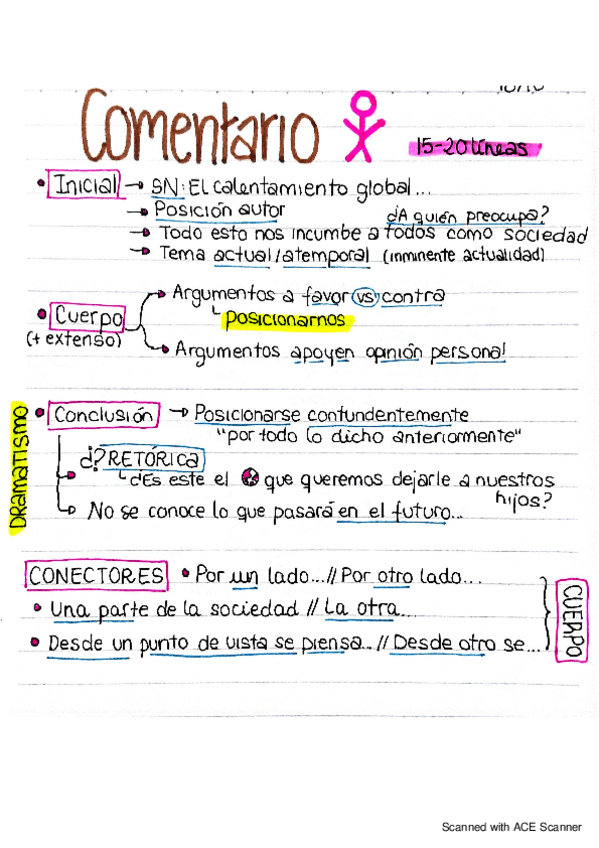 Comentario
15-20 líneas
• Inicial → SN: El calentamiento global...
→ Posición autor
¿A quién preocupa?
→ Todo esto nos incumbe a todos como sociedad
→ Tema actual/atemporal (inminente actualidad)
• Cuerpo
(+ extenso)
→ Argumentos a favor vs contra
posicionarnos
→ Argumentos apoyen opinión personal
DRAMATISMO
• Conclusión → Posicionarse contundentemente
"por todo lo dicho anteriormente"
¿? RETÓRICA
¿Es este el que queremos dejarle a nuestros
hijos?
No se conoce lo que pasará en el futuro...
CONECTORES • Por un lado...//Por otro lado...
• Una parte de la sociedad // La otra...
• Desde un punto de vista se piensa...// Desde otro se...
CUERPO
Scanned with ACE Scanner